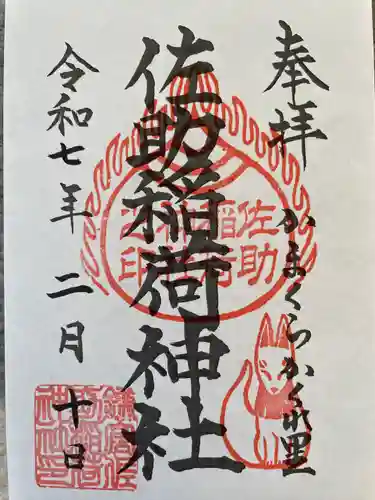 奉拝
かまくらかくれ里
佐助稲荷神社
佐助
稲荷
神社
之印
令和七年 二月 十日
鎌倉佐